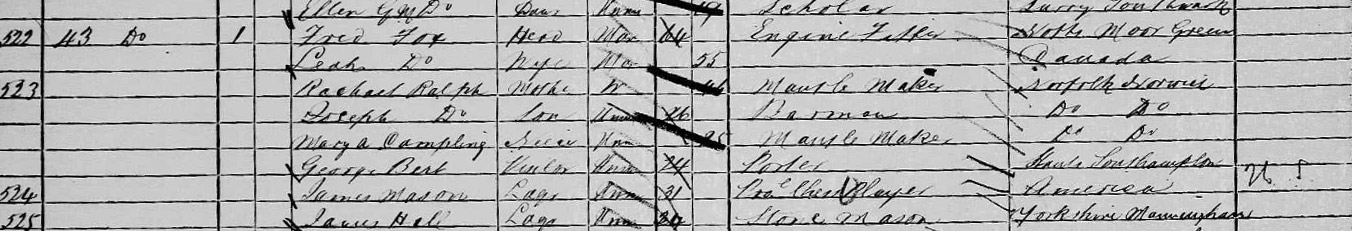 Ellen Do Daur Unm 19 Scholar Surry Southwark
522 43 Do 1 Fred Fox Head Mar 64 Engine Fitter Notts Moor Green
Leah Do Wife Mar 55 Canada
523 Rachael Ralph Mothe W 46 Mantle Maker Norfolk Norwich
Joseph Do Son Unm 16 Barman Do Do
Mary A Campling Niece Unm 25 Mantle Maker Do Do
George Bert Visitor Unm 24 Porter Hants Southampton
524 James Mason Lagr Unm 31 Chess Player America
525 James Hall Lagr Unm Stone Mason Yorkshire Manningham